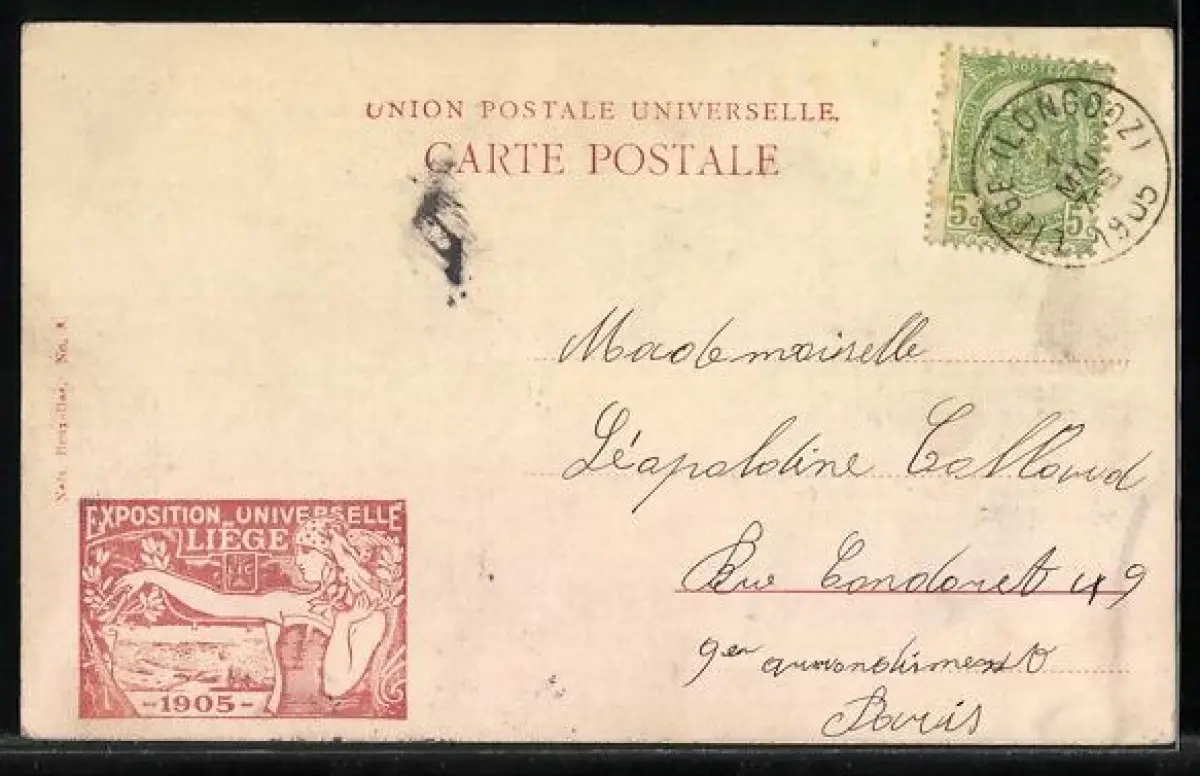 UNION POSTALE UNIVERSELLE.
CARTE POSTALE
POSTES
5 5
LIÈGE (LONGDOZ)
1905
Mademoiselle
Léopoldine Colloud
Rue Condorcet 49
9en arrondisment
Paris
Nels, No.
EXPOSITION UNIVERSELLE
DE
LIÈGE
-1905-